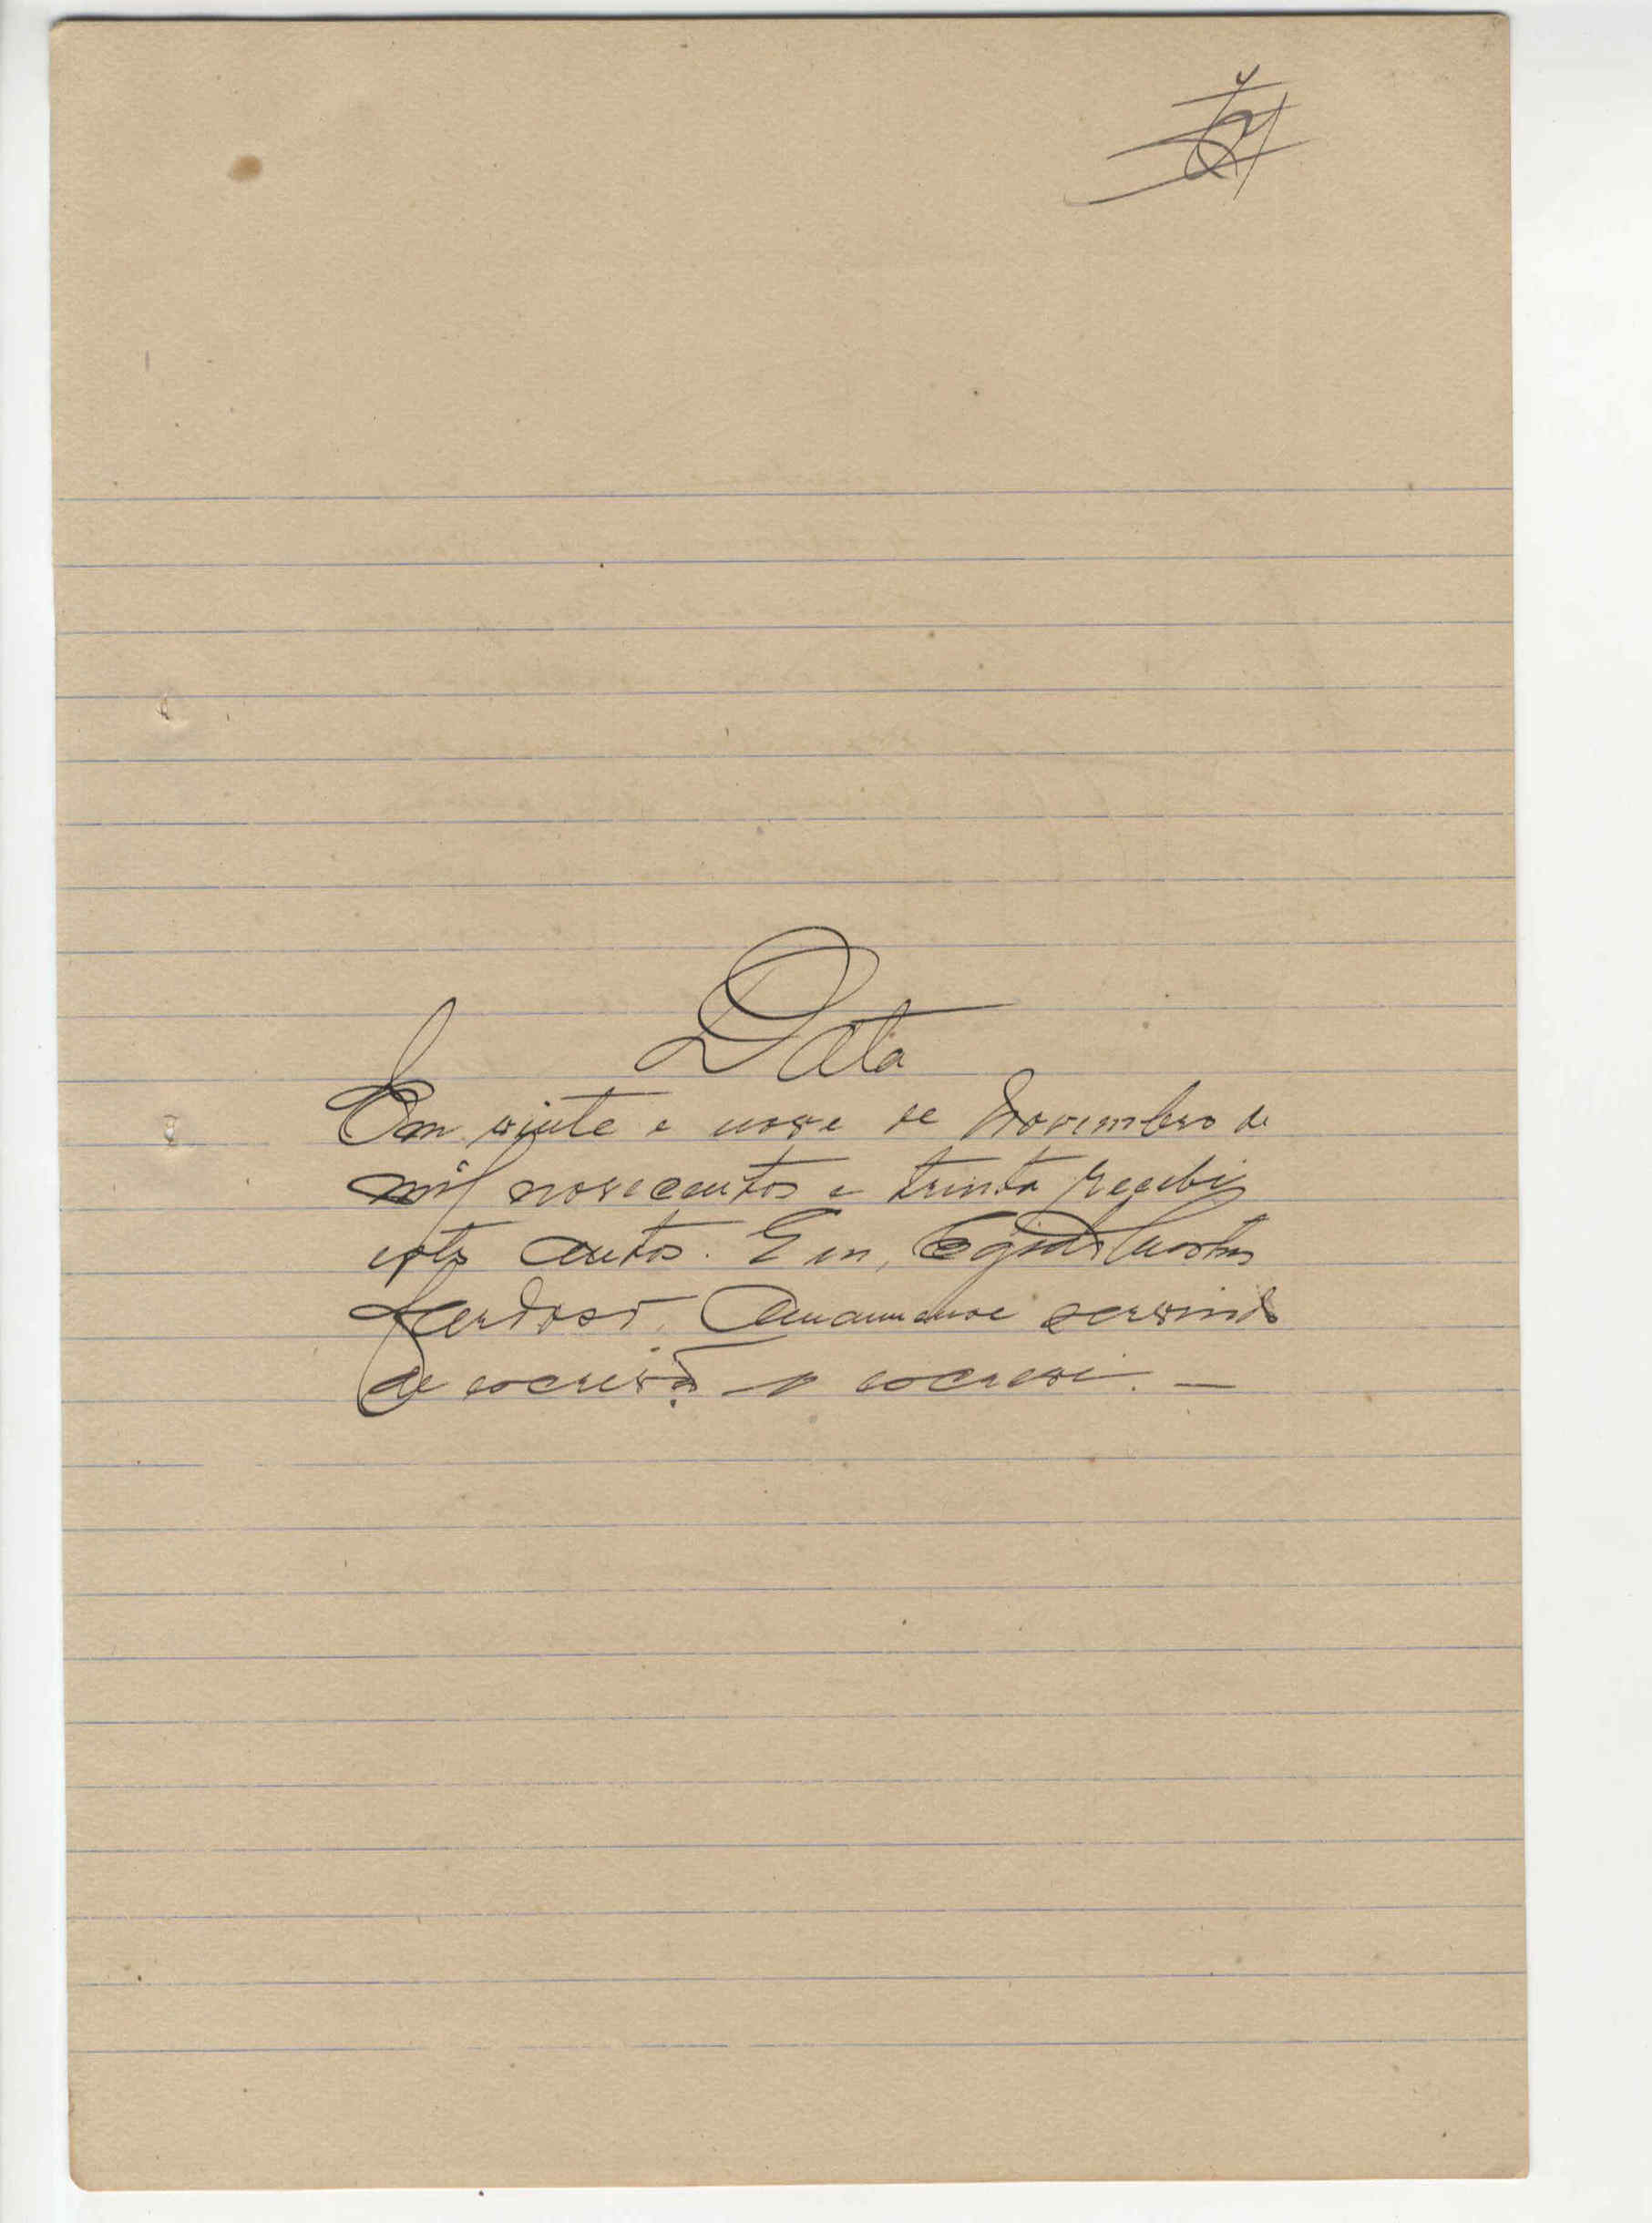 Data
Em vinte e nove de Novembro de
mil novecentos e trinta recebi
estes autos. Eu, Egidio
Cardoso. Amanuense servindo
de escrivão o escrevi. —